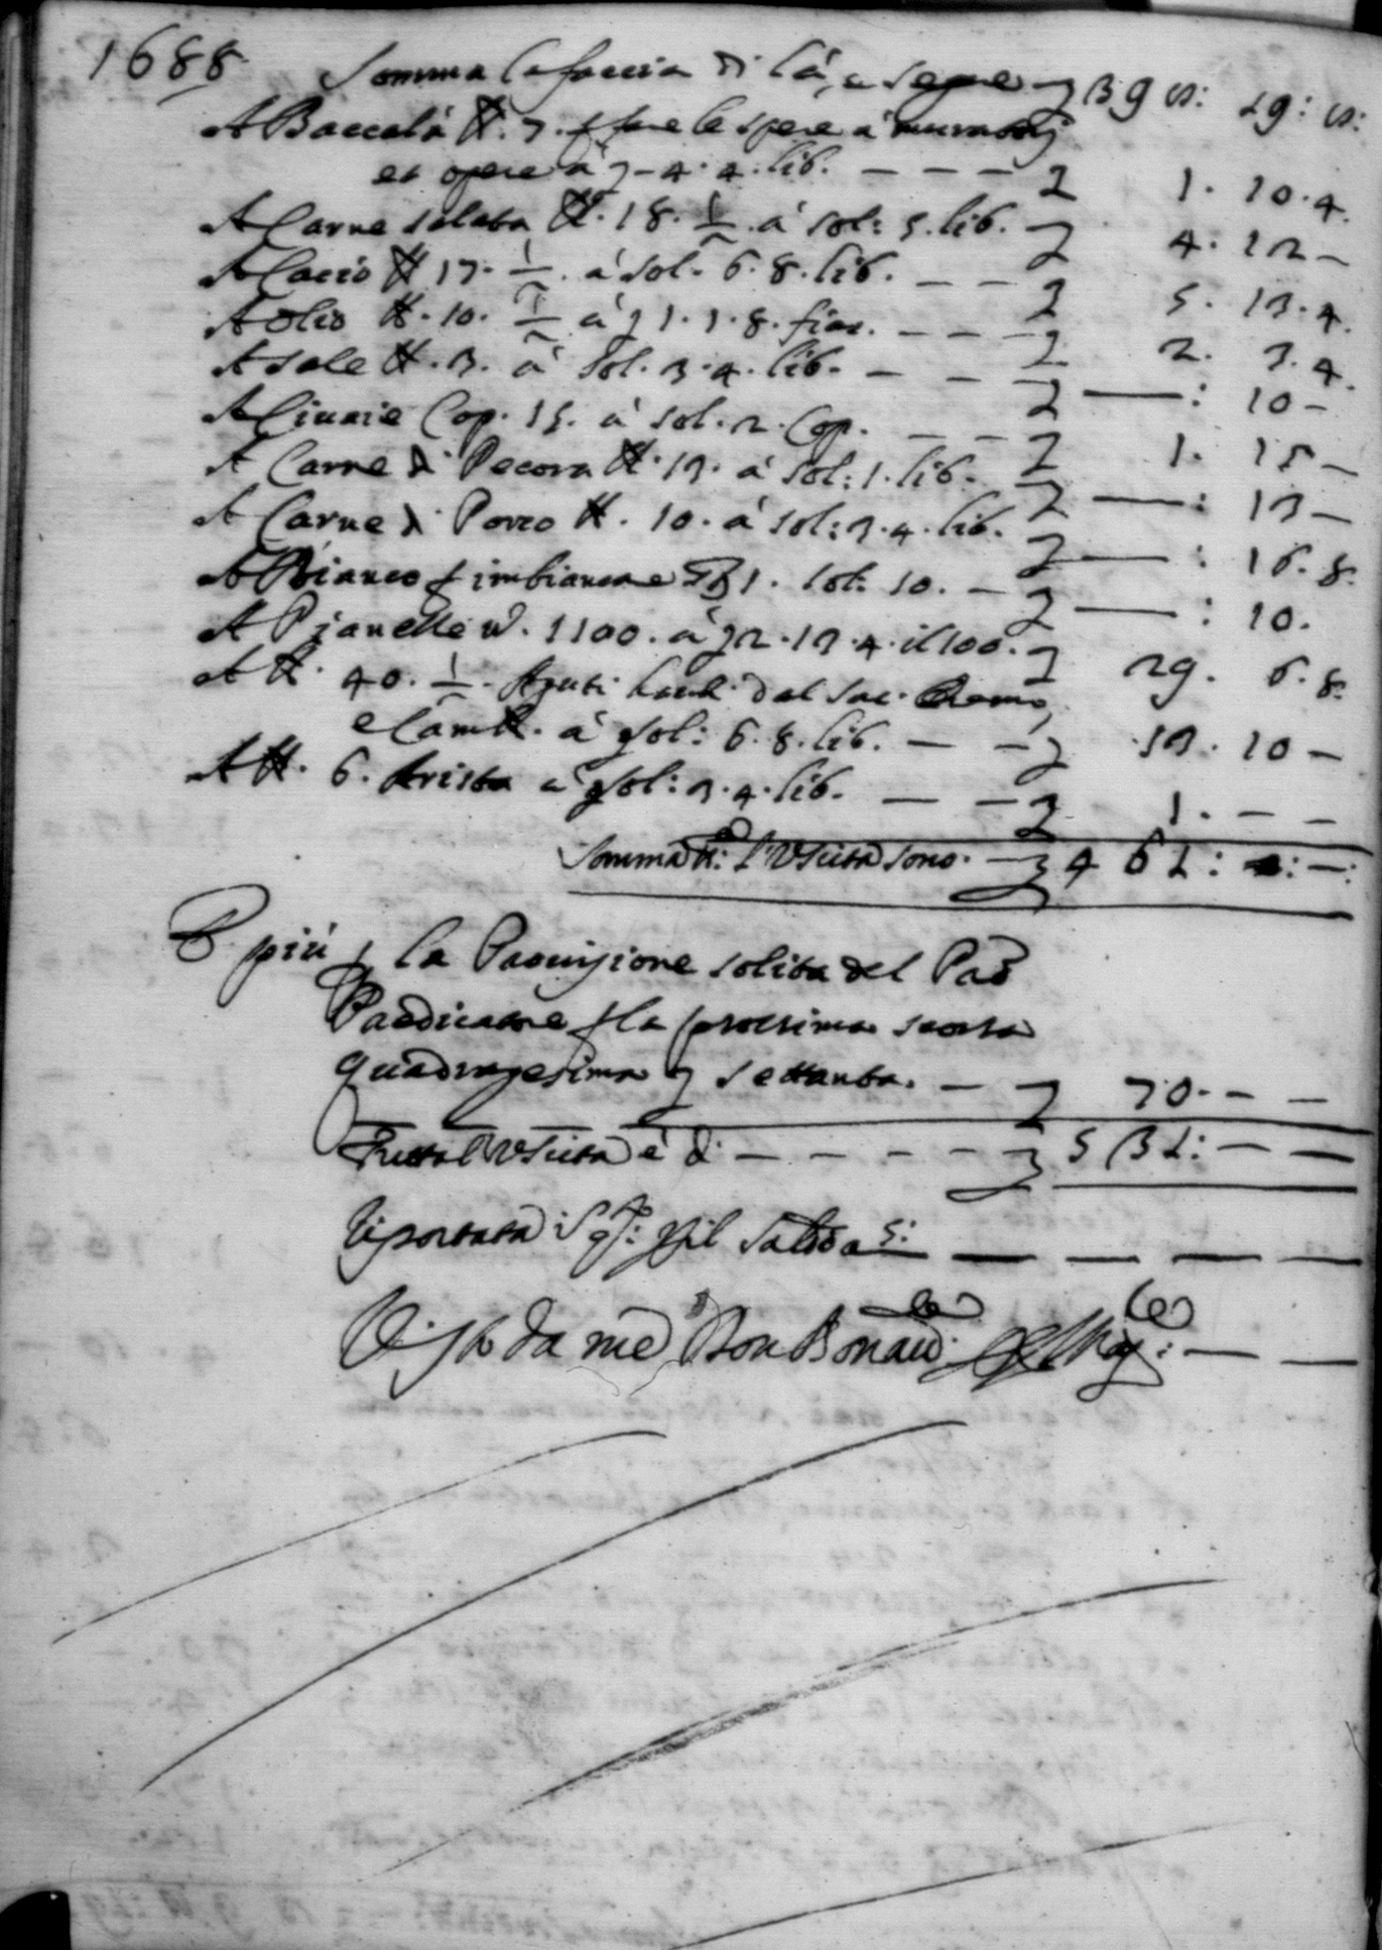 1688 Somma la faccia di là, e segue 39
A Baccalà lb. 7. p fare le spese a' muratorj
et opere à  - 4. 4. lib. — — — 1. 10. 4.
A Carne salata lb. 18. 1/2 à sol: 5. lib. 4. 12 —
A Cacio lb 17. 1/2 à sol. 6. 8. lib. — — 5. 13. 4.
A olio lb. 10. 1/2 à 1. 1. 8. fias. — — — 2. 3. 4.
A sale lb. 3. à sol. 3. 4. lib. — — — : 10 —
A Ciuaie Cop. 15. à sol. 2. Cop. — — 1. 15 —
A Carne di Pecora lb. 13. à sol: 1. lib. — — : 13 —
A Carne di Porco lb. 10. à sol: 3. 4. lib. — : 16. 8.
A Bianco p imbiancare 1. sol: 10. — — : 10.
A Pianelle n. 1100. à 2. 13. 4. il 100. 29. 6. 8.
A lb. 40. 1/2. Aguti dal
e à sol: 6. 8. lib. — — 13. 10 —
A lb. 6. Arista à sol: 3. 4. lib. — — 1. — —
Somma L'Vscita sono. — 461: —: —:
E più p la Prouisione solita del Pad
Predicatore p la prossima
quadragesima settanta. — 70. — —
Tutta l'Vscita è di — — — — — 531: — —
riportata il saldo a 5: — — — —
Visto da me Don — —